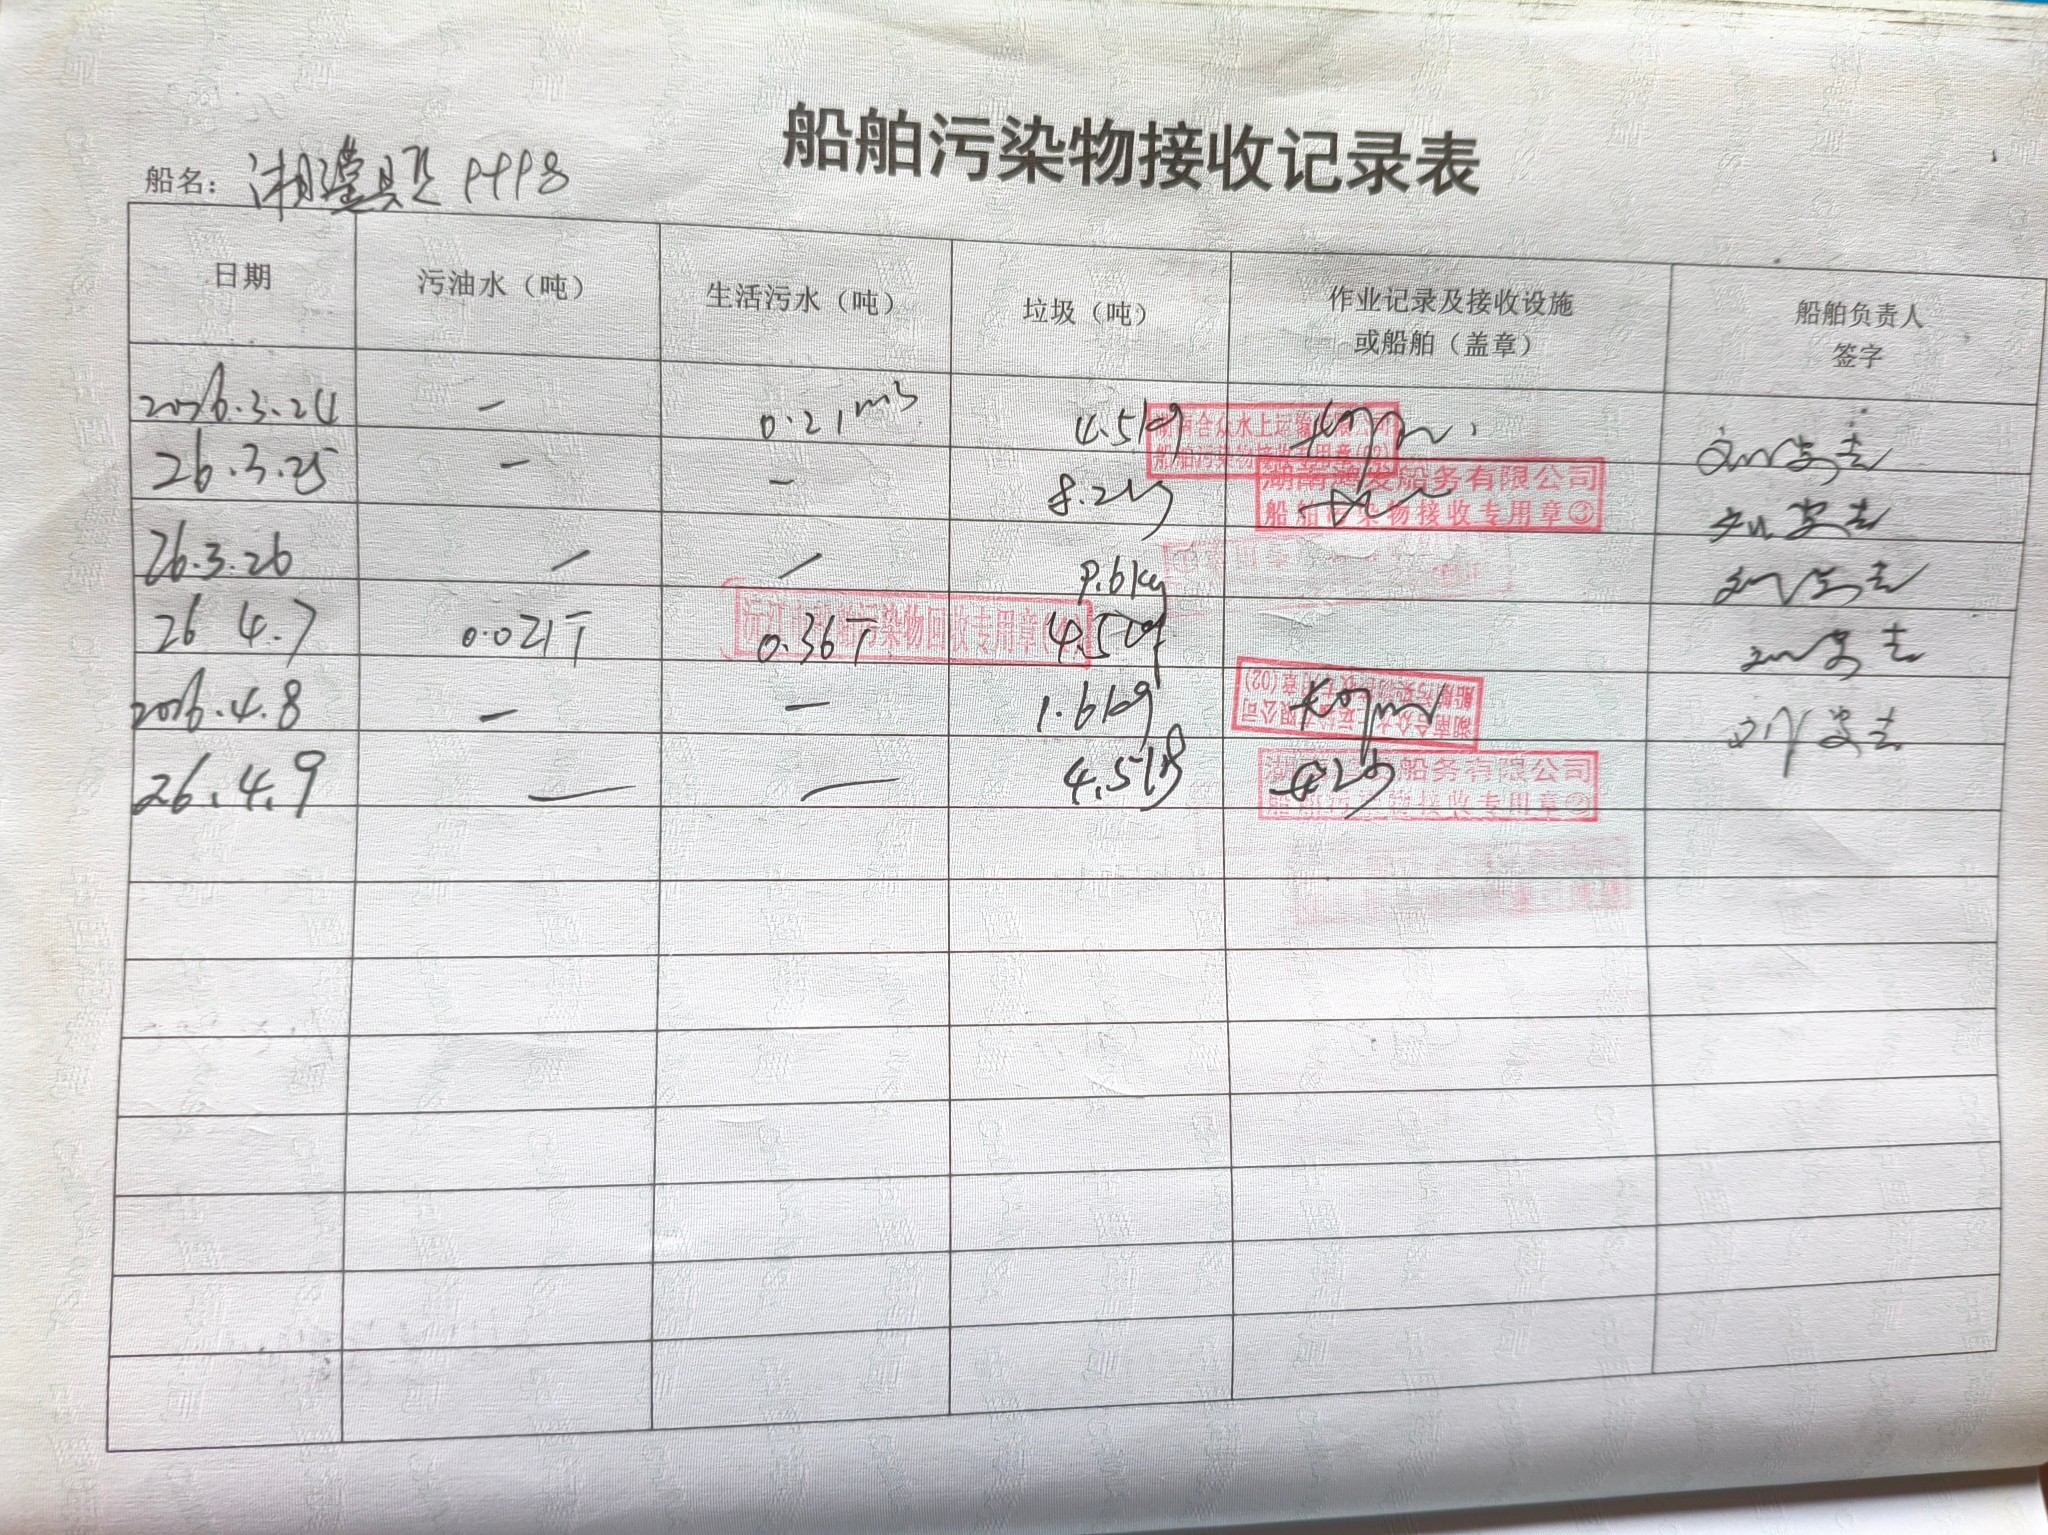 船舶污染物接收记录表
船名：湘 9998
日期 污油水（吨） 生活污水（吨） 垃圾（吨） 作业记录及接收设施或船舶（盖章） 船舶负责人签字
2026.3.24 — 0.21m3 4.5kg
合众水上运输
船舶污染物接收专用章
26.3.25 — — 8.2kg
湖南鸿发船务有限公司
船舶污染物接收专用章③
26.3.26 — — 9.6kg
26 4.7 0.021T 0.36T 4.5kg
沅江市船舶污染物回收专用章
2026.4.8 — — 1.6kg
湖南合众水上运输有限公司
船舶污染物接收专用章(02)
26.4.9 — — 4.5kg
船务有限公司
船舶污染物接收专用章②